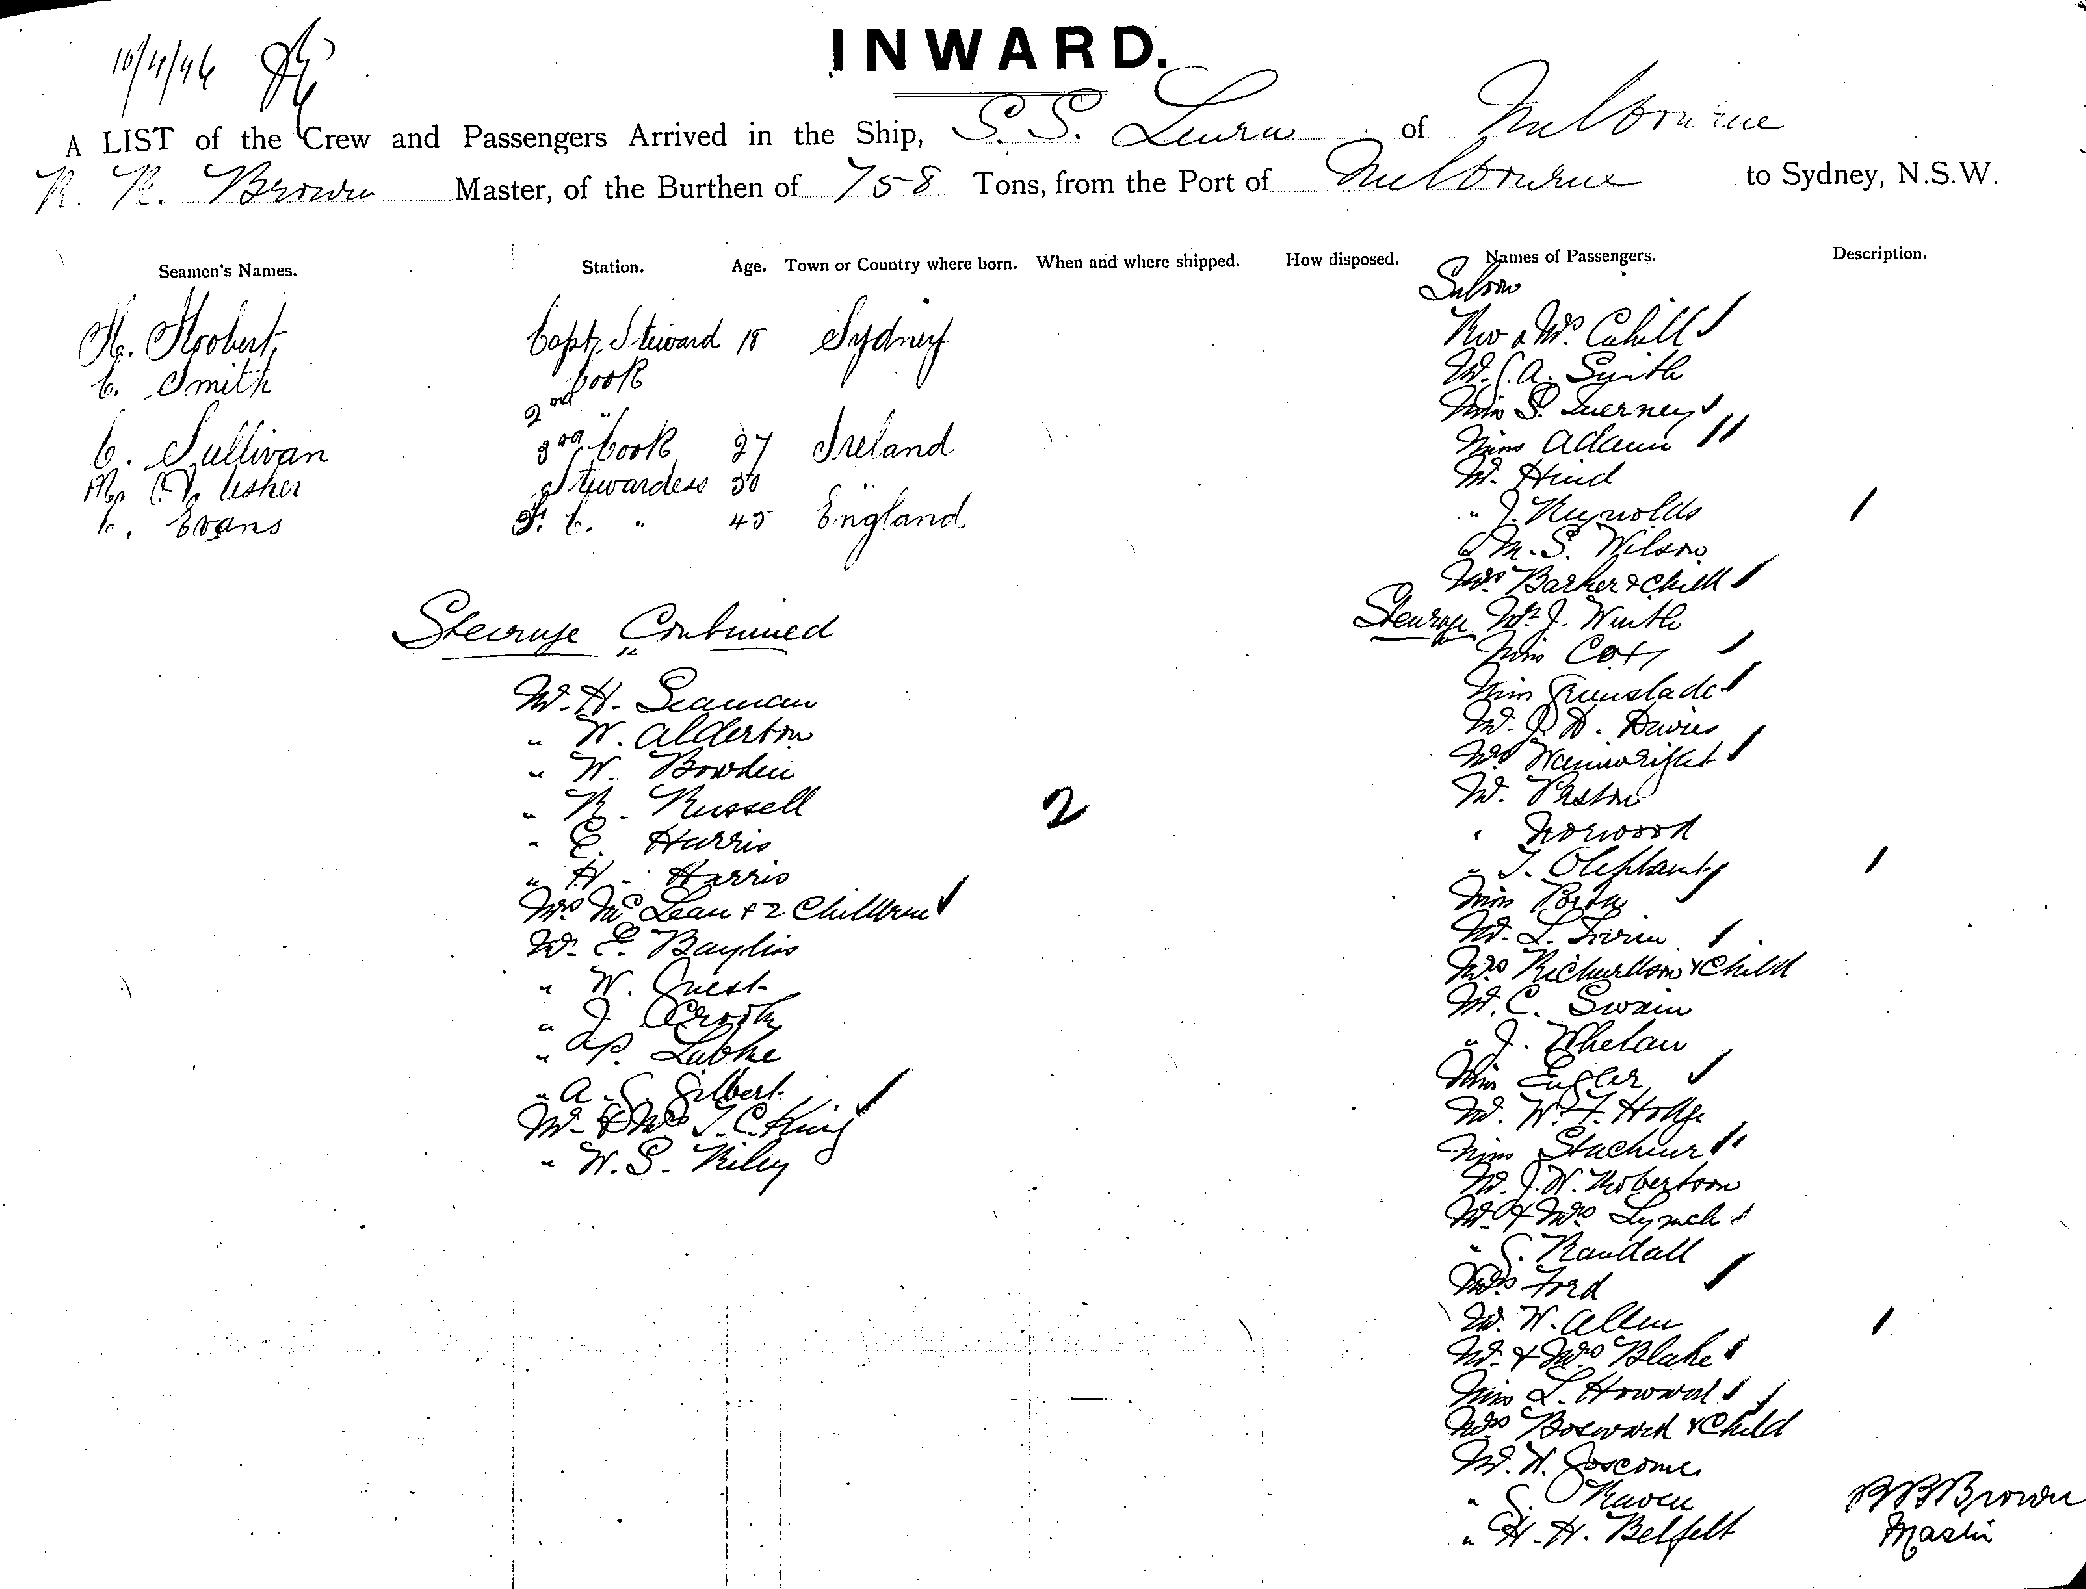 INWARD.
10/4/96
A LIST of the Crew and Passengers Arrived in the Ship, S.S. Leura of Melbourne
R. R. Brown Master, of the Burthen of 758 Tons, from the Port of Melbourne to Sydney, N.S.W.
Seamen's Names. Station. Age. Town or Country where born. When and where shipped. How disposed. Names of Passengers. Description.
H. Hrobert Capt. Steward 18 Sydney
C. Smith 2nd Cook
C. Sullivan 3rd Cook 27 Ireland
Usher Stewardess 50 "
C. Evans F. C. " 45 England
Steerage Continued
Mr. H. Seaman
" W. Alderton
" W. Bowden
" R. Russell
" E. Harris
" H. Harris
Mrs McLean & 2 Children
Mr. E. Bayliss
" W. Guest
" J. Crook
" P. Lubke
" A. G. Gilbert
Mr. & Mrs T. C. King
" W. S. Riley
2
Saloon
Rev & Mrs. Cahill
Mr. G. A. Smith
Miss S. Tuerney
Miss Adams
Mr. Hind
" J. Reynolds
" M. S. Wilson
Mrs Barker & Child
Steerage Mr. J. Winth
Miss Cox
Miss Greenslade
Mr. J. D. Davies
Mrs Wainwright
Mr. Preston
" Norwood
" T. Oliphant
Miss Porta
Mr. L.
Mrs Richardson & Child
Mr. C. Swain
" J. Whelan
Miss Engler
Mr. W. F. Hodge
Miss
Mr. J. W. Robertson
Mr. & Mrs Lynch
" G. Randall
Mrs Ford
Mr. W. Allen
Mr. & Mrs Blake
Miss L. Howard
Mrs Bosward & Child
Mr. H. Joscome
" G. Raven
" H. H. Belfelt
R R Brown
Master